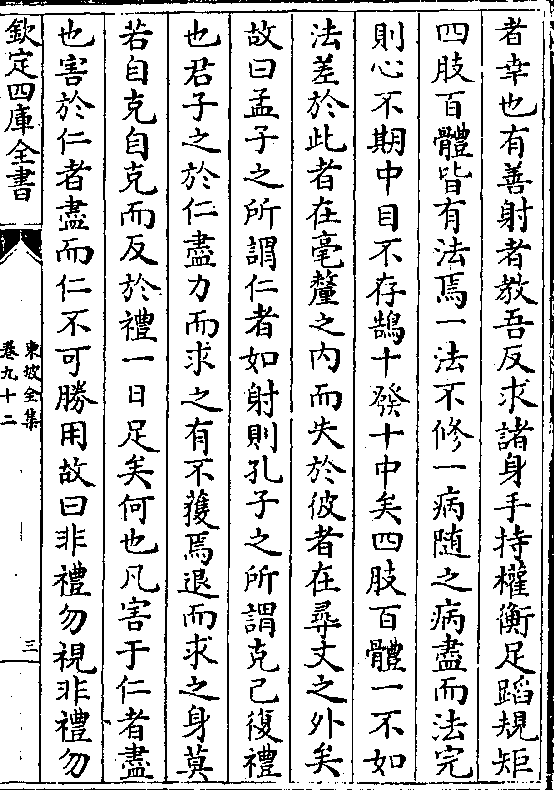 者幸也有善射者教吾反求諸身手持權衡足蹈規矩
四肢百體皆有法焉一法不修一病隨之病盡而法完
則心不期中目不存鵠十發十中矣四肢百體一不如
法差於此者在毫釐之内而失於彼者在尋丈之外矣
故曰孟子之所謂仁者如射則孔子之所謂克己復禮
也君子之於仁盡力而求之有不獲焉退而求之身莫
若自克自克而反於禮一日足矣何也凡害于仁者盡
也害於仁者盡而仁不可勝用故曰非禮勿視非禮勿
欽定四庫全書
東坡全集
卷九十二
三